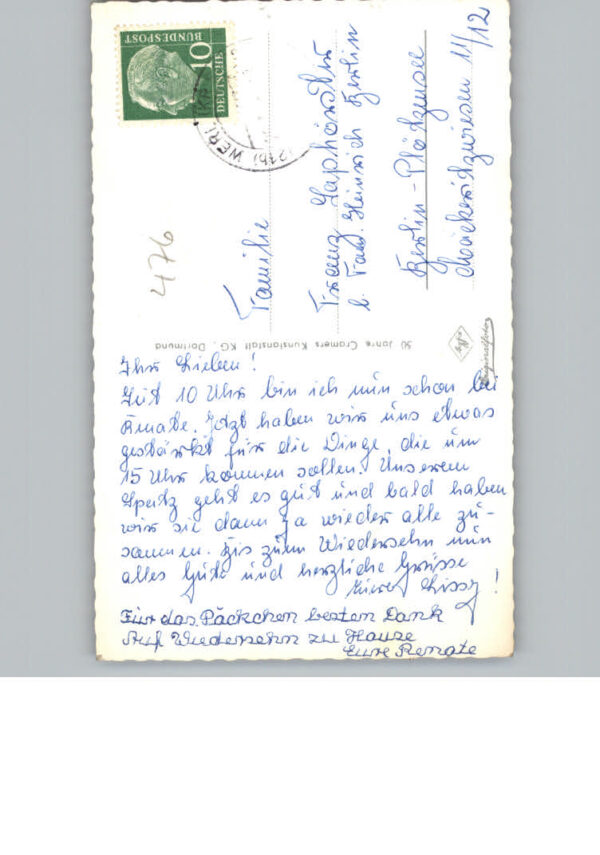 Ihr Lieben!
Seit 10 Uhr bin ich nun schon bei
Renate. Jetzt haben wir uns etwas
gestärkt für die Dinge, die um
15 Uhr kommen sollen. Unserem
Spatz geht es gut und bald haben
wir sie dann ja wieder alle zu-
sammen. Bis zum Wiedersehn nun
alles Gute und herzliche Grüsse
Eurer Lissy!
Für das Päckchen besten Dank
Auf Wiedersehn zu Hause
Eure Renate
Familie
Franz
b. Fam. Heinrich Berlin
Berlin-Plötzensee
11/12
476
50 Jahre Cramers Kunstanstalt KG., Dortmund
Originalfoto
DEUTSCHE
BUNDESPOST
10
(21b) WERL